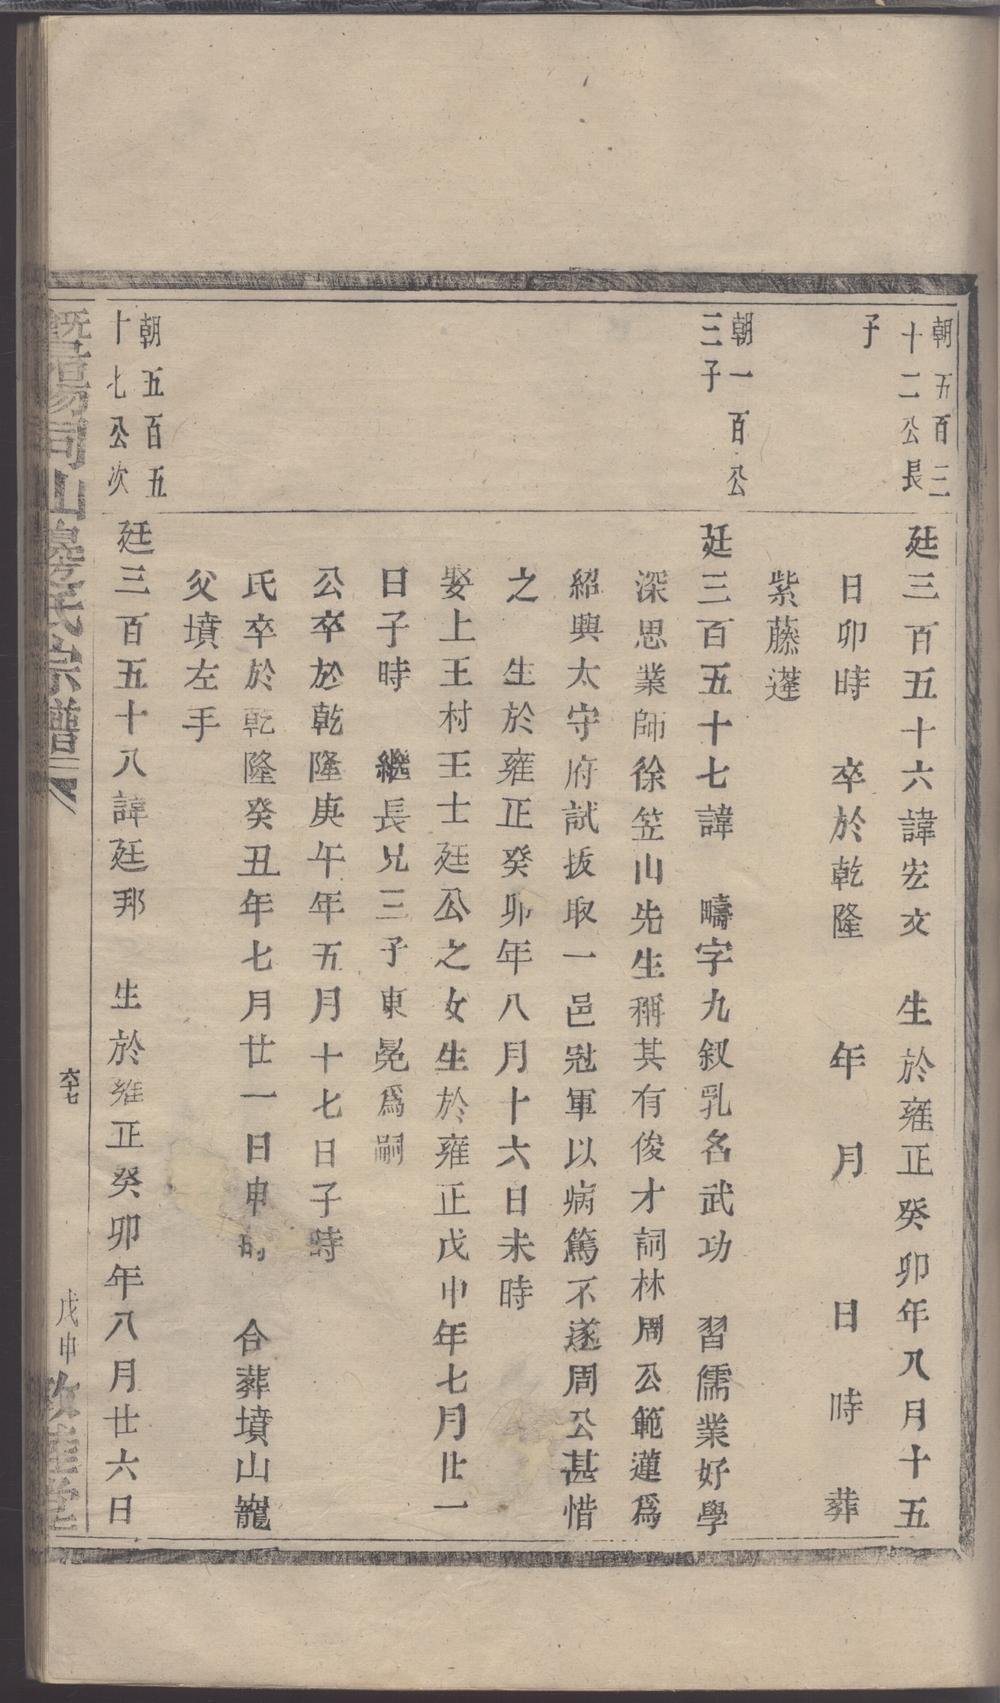 朝五百三
十二公長
子
廷三百五十六諱宏文　生於雍正癸卯年八月十五
日卯時　卒於乾隆　年　月　日　時　葬
紫藤蓬
朝一百公
三子
廷三百五十七諱　疇字九叙乳名武功　習儒業好學
深思業師徐笠山先生稱其有俊才詞林周公範蓮爲
紹興太守府試拔取一邑冠軍以病篤不遂周公甚惜
之　生於雍正癸卯年八月十六日未時
娶上王村王士廷公之女生於雍正戊申年七月廿一
日子時　繼長兄三子東晃爲嗣
公卒於乾隆庚午年五月十七日子時
氏卒於乾隆癸丑年七月廿一日申時　合葬墳山寵
父墳左手
朝五百五
十七公次
廷三百五十八諱廷邦　生於雍正癸卯年八月廿六日
暨陽同山邊氏宗譜
六十七
戊申敦睦堂